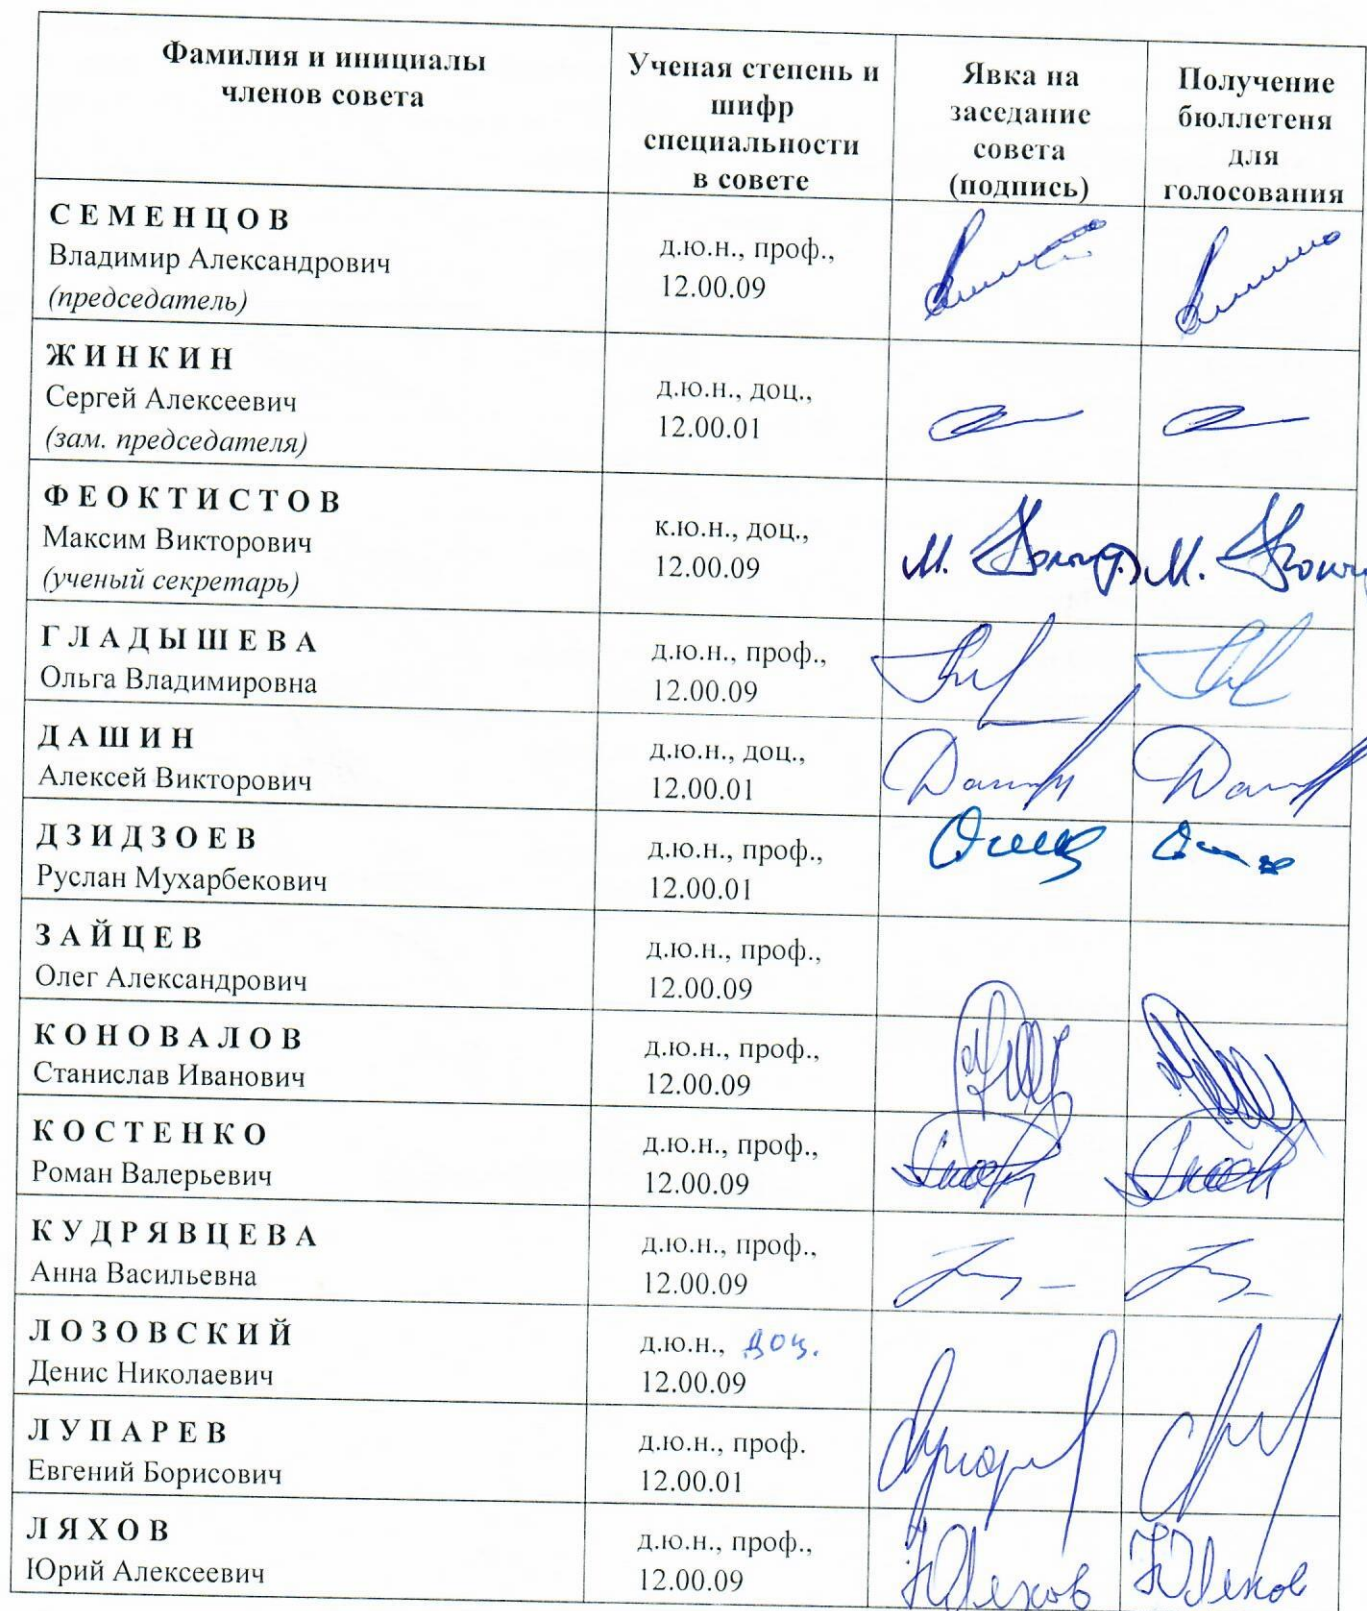 Фамилия и инициалы
членов совета
Ученая степень и
шифр
специальности
в совете
Явка на
заседание
совета
(подпись)
Получение
бюллетеня
для
голосования
СЕМЕНЦОВ
Владимир Александрович
(председатель)
д.ю.н., проф.,
12.00.09
ЖИНКИН
Сергей Алексеевич
(зам. председателя)
д.ю.н., доц.,
12.00.01
ФЕОКТИСТОВ
Максим Викторович
(ученый секретарь)
к.ю.н., доц.,
12.00.09
ГЛАДЫШЕВА
Ольга Владимировна
д.ю.н., проф.,
12.00.09
ДАШИН
Алексей Викторович
д.ю.н., доц.,
12.00.01
ДЗИДЗОЕВ
Руслан Мухарбекович
д.ю.н., проф.,
12.00.01
ЗАЙЦЕВ
Олег Александрович
д.ю.н., проф.,
12.00.09
КОНОВАЛОВ
Станислав Иванович
д.ю.н., проф.,
12.00.09
КОСТЕНКО
Роман Валерьевич
д.ю.н., проф.,
12.00.09
КУДРЯВЦЕВА
Анна Васильевна
д.ю.н., проф.,
12.00.09
ЛОЗОВСКИЙ
Денис Николаевич
д.ю.н., доц.
12.00.09
ЛУПАРЕВ
Евгений Борисович
д.ю.н., проф.
12.00.01
ЛЯХОВ
Юрий Алексеевич
д.ю.н., проф.,
12.00.09
ЮЛяхов
ЮЛяхов